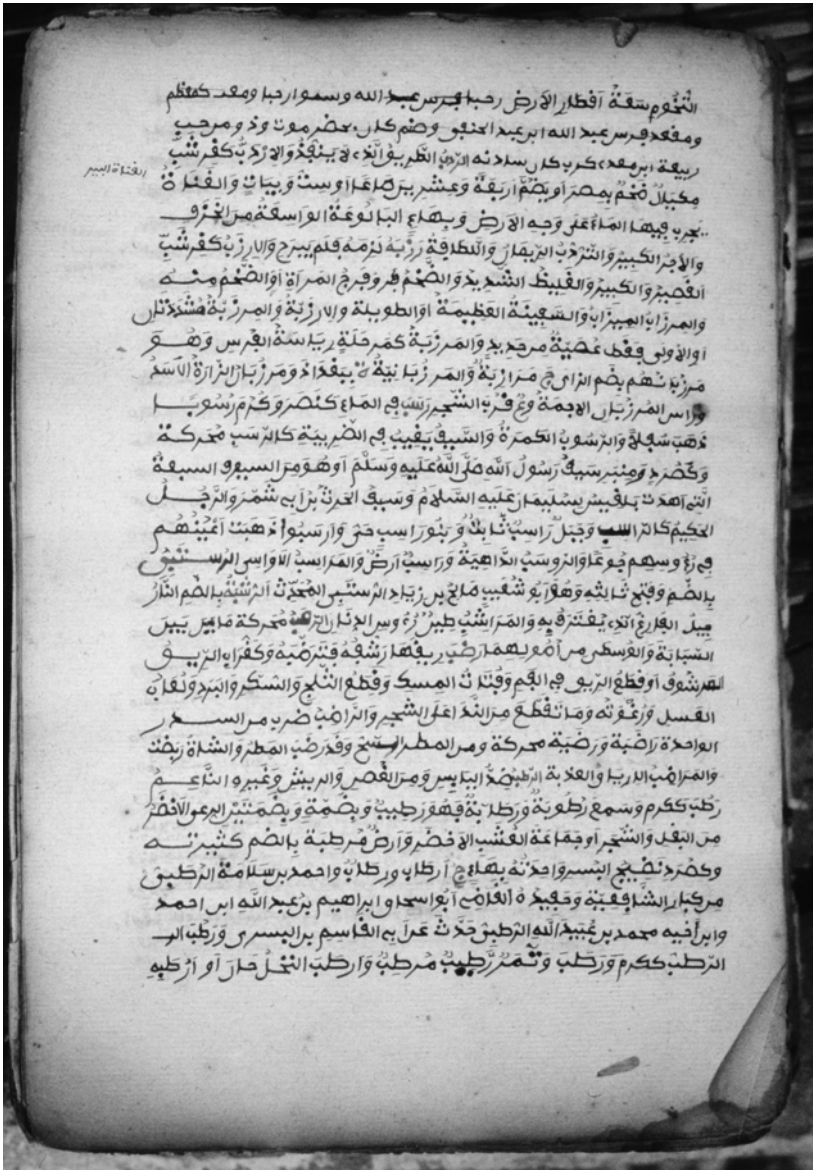 التخوم سعة أقطار الأرض رحبا فرس عبد الله وسموا رحبا ومقعد كمعظم
ومقعد فرس عبد الله ابن عبد الحنفي وضم كان بحضرموت وذو مرحب
ربيعة ابن معد، كرب كان سادنه الردب الطريق الذى لا ينفذ والاردب كقرشب
القناة البير
مكيال ضخم بمصر أو يضم أربعة وعشرين صاعا أو ست ويبات والقناة
يجرى فيها الماء على وجه الأرض وبهاء البالوعة الواسعة من الخزف
والأجر الكبير والتردب الريمان واللطافة رزبه لزمه فلم يبرح والارزب كقرشب
القصير والكبير والغليظ الشديد والضخم وفرج المرأة أو الضخم منه
والمرزاب الميزاب والسفينة العظيمة أو الطويلة والارزبة والمرزبة مشددتان
أو الأولى فقط عصية من حديد والمرزبة كمرحلة رياسة الفرس وهو
مرزبانهم بضم الزاى ج مرازبة والمرزبانية ة ببغداذ ومرزبان الزارة الأسد
وراس المرزبان الاجمة وع قرب الشحر رسب فى الماء كنصر وكرم رسوبا
ذهب سفلا والرسوب الكمرة والسيف يغيب فى الضريبة كالرسب محركة
وكصرد ومنبر سيف رسول الله صلى الله عليه وسلم أو هو من السيوف السبعة
التى أهدت بلقيس سليمان عليه السلام وسيف الحرث بن أبي شمر والرجل
الحكيم كالراسب وجبل راسب ثابت وبنو راسب حى وارسبوا ذهبت أعينهم
فى رءوسهم جوعا والروسب الداهية وراسب أرض والمراسب الاواسى الرستبى
بالضم وفتح ثالثه وهو أبو شعيب صالح بن زياد الرستبى المحدث الرشبة بالضم النار
جيل الفارغ الذى يغترف به والمراشب طين رءوس الدنان الرصب محركة ما بين
السبابة والوسطى من أصولهما رضب ريقها رشفه فترضبه وكغراب الريق
المرشوف أو قطع الريق فى الفم وفتات المسك وقطع الثلج والسكر والبرد ولعاب
العسل ورغوته وما تقطع من الندا على الشجر والراضب ضرب من السدر
الواحدة راضبة ورضبة محركة ومن المطر السح وقد رضب المطر والشاة ربضت
والمراضب الارياق العذبة الرطب ضد اليابس ومن الغصن والريش وغيره الناعم
رطب ككرم وسمع رطوبة ورطابة فهو رطيب وبضمة وبضمتين الرعى الاخضر
من البقل والشجر أو جماعة العشب الاخضر وأرض مرطبة بالضم كثيرته
وكصرد نضيج البسر واحدته بهاء ج ارطاب ورطاب واحمد بن سلامة الرطبى
من كبار الشافعية وحفيده القاضى أبو اسحاق ابراهيم بن عبد الله ابن احمد
وابن أخيه محمد بن عبيد الله الرطبى حدث عن أبي القاسم بن البسرى ورطب
الرطب ككرم ورطب وتمر رطيب مرطب وارطب النخل حان أو ارطبه